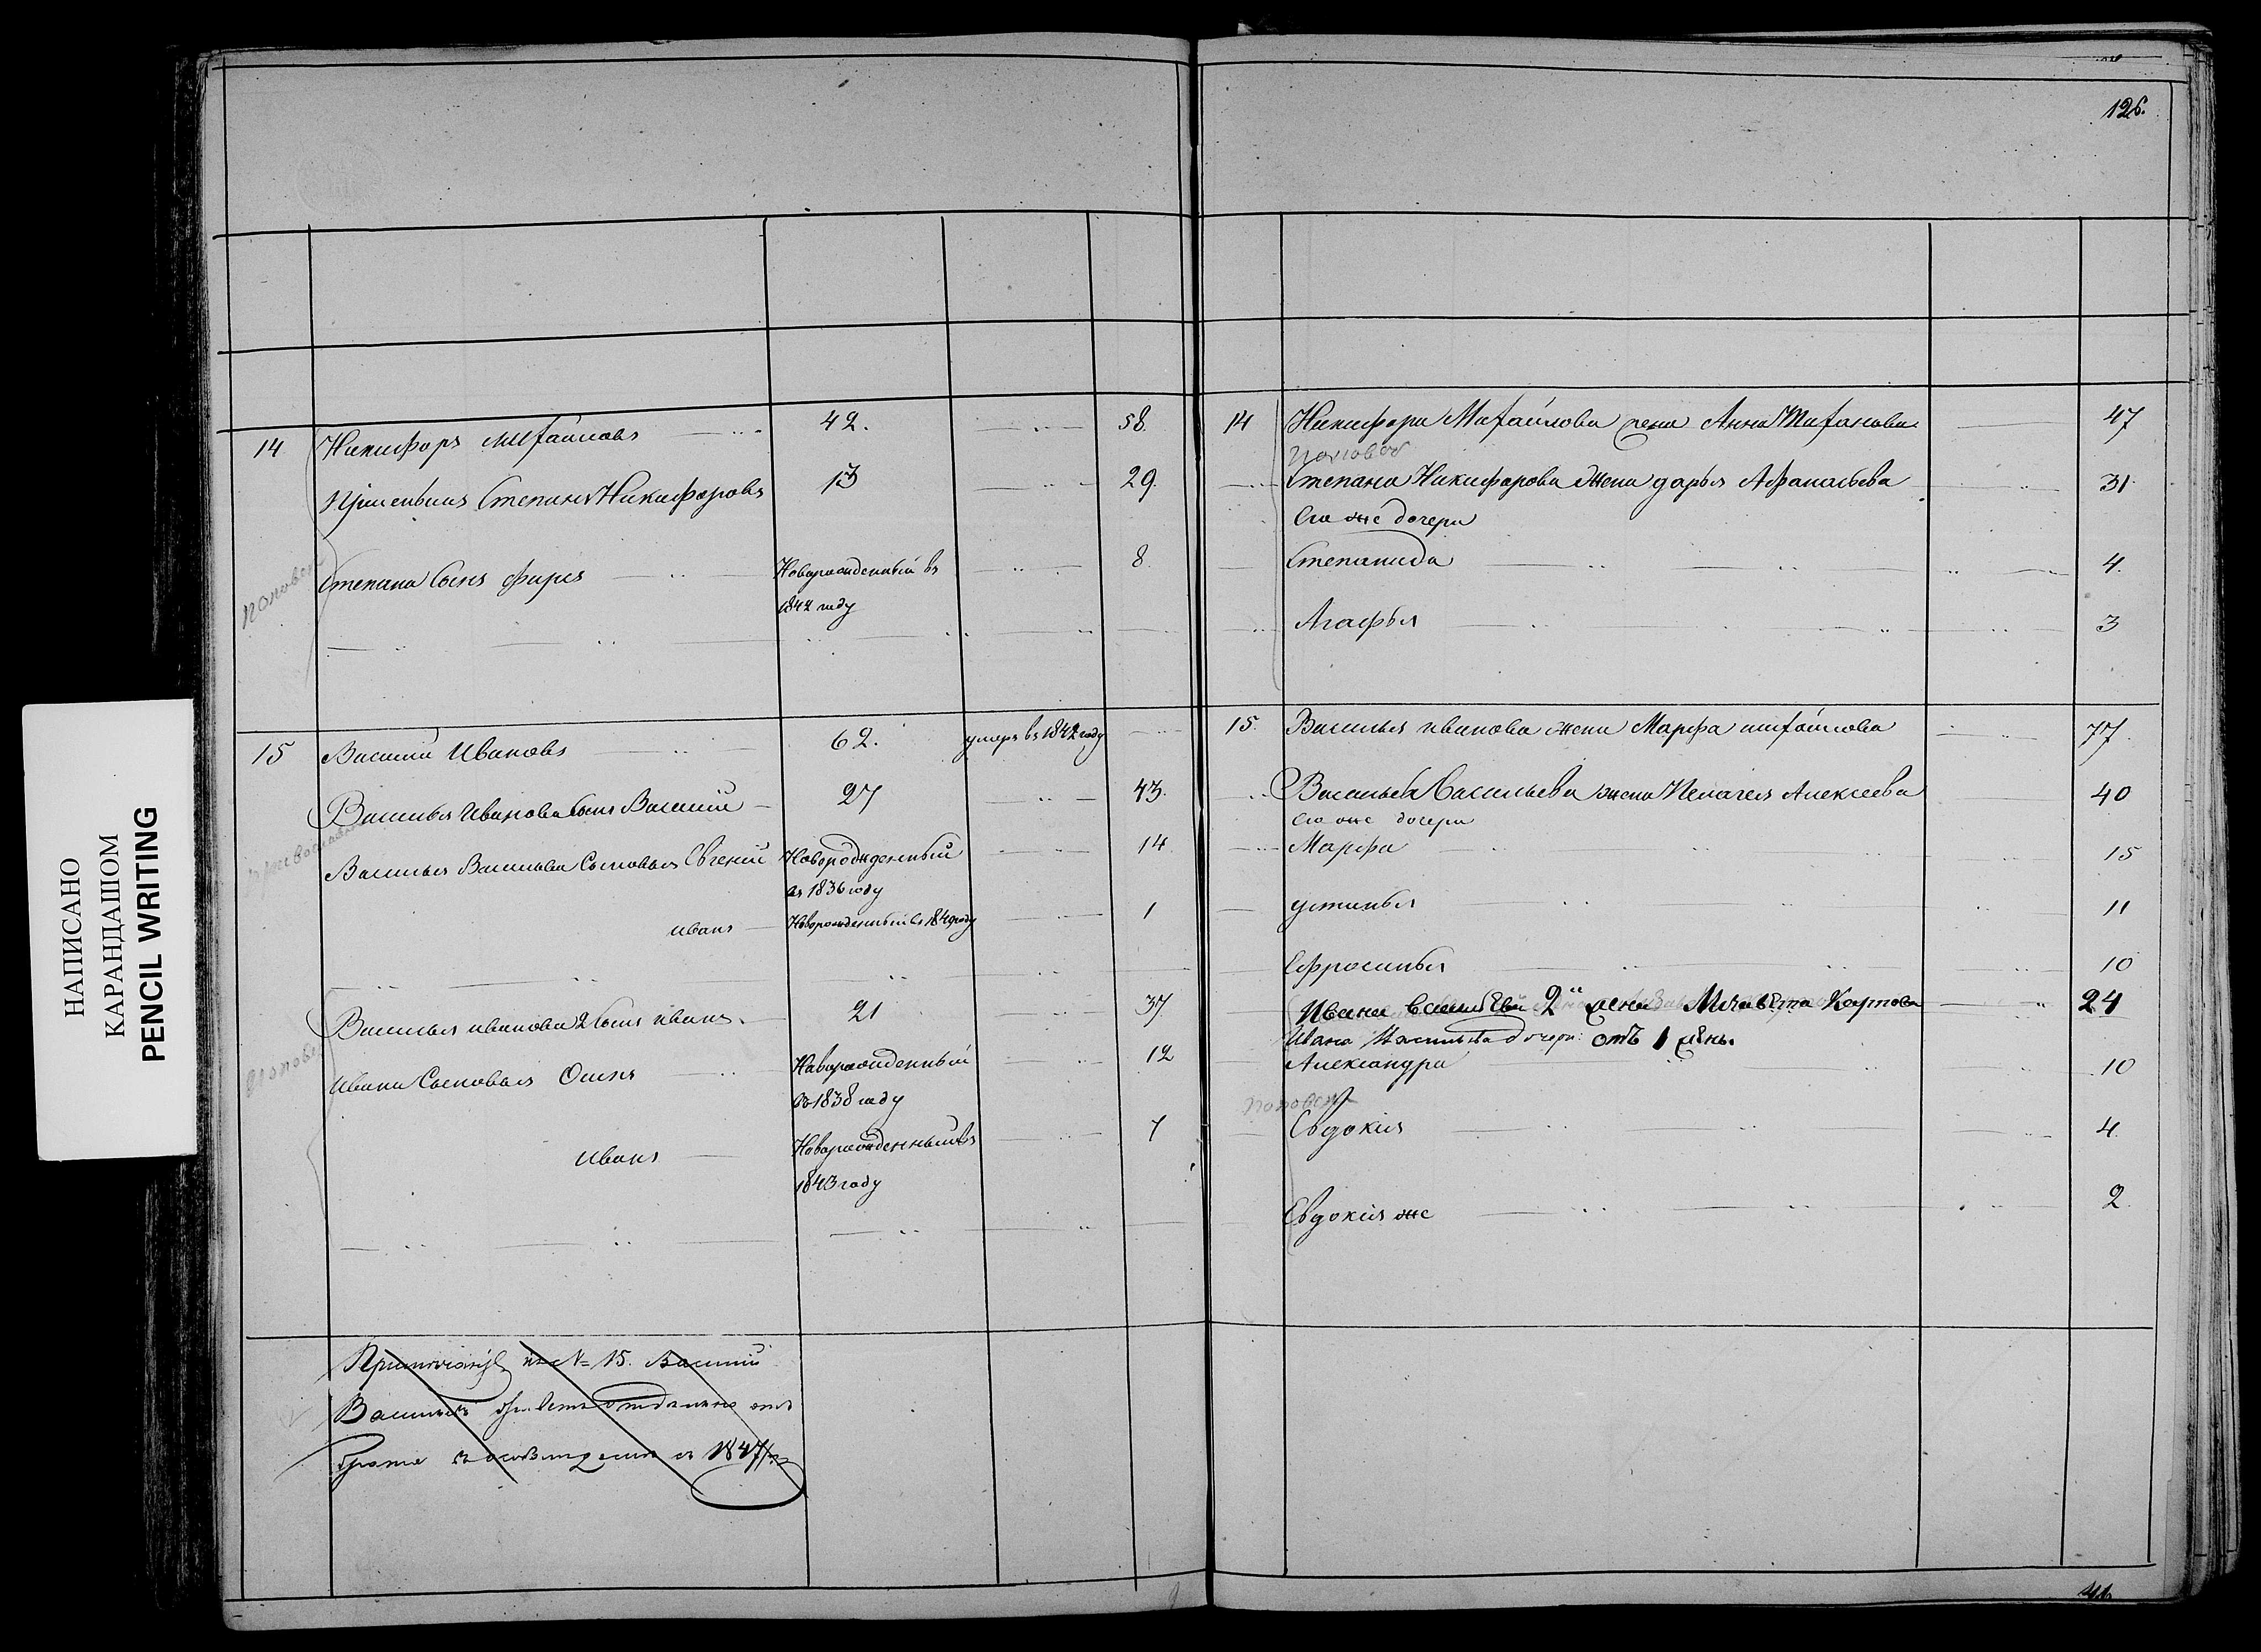 126.
НАПИСАНО
КАРАНДАШОМ
PENCIL WRITING
14 Никифоръ Михайловъ 42. 58.
Приемышъ Степанъ Никифоровъ 13 29.
Степана Сынъ Фирсъ Новорожденный въ 8.
1842 году
15 Василий Ивановъ 62. умеръ въ 1842 году
Василья Иванова Сынъ Василий 27 43.
Василья Васильева Сыновья Евгений Новорожденный 14
въ 1836 году
иванъ Новорожденный въ 1849 году 1
Василья иванова 2 Сынъ иванъ. 21 37
Ивана Сыновья Осипъ Новорожденный 12
въ 1838 году
иванъ Новорожденный въ 7
1843 году
№ 15. Василий
Васильевъ
1847
14 Никифора Михайлова жена Анна 47
поповск
Степана Никифорова жена дарья Афанасьева 31
Его же дочери
Степанида 4.
Агафья 3
15. Василья иванова жена Марфа михайлова 77.
Василья Васильева жена Пелагея Алексеева 40
Его же дочери
Марфа 15
устинья 11
Ефросинья 10
Ивана васильева 2й жена Карпова 24
Ивана Васильева дочери: отъ 1 жены.
Александра 10
поповск
Евдокия 4.
Евдокия же 2.